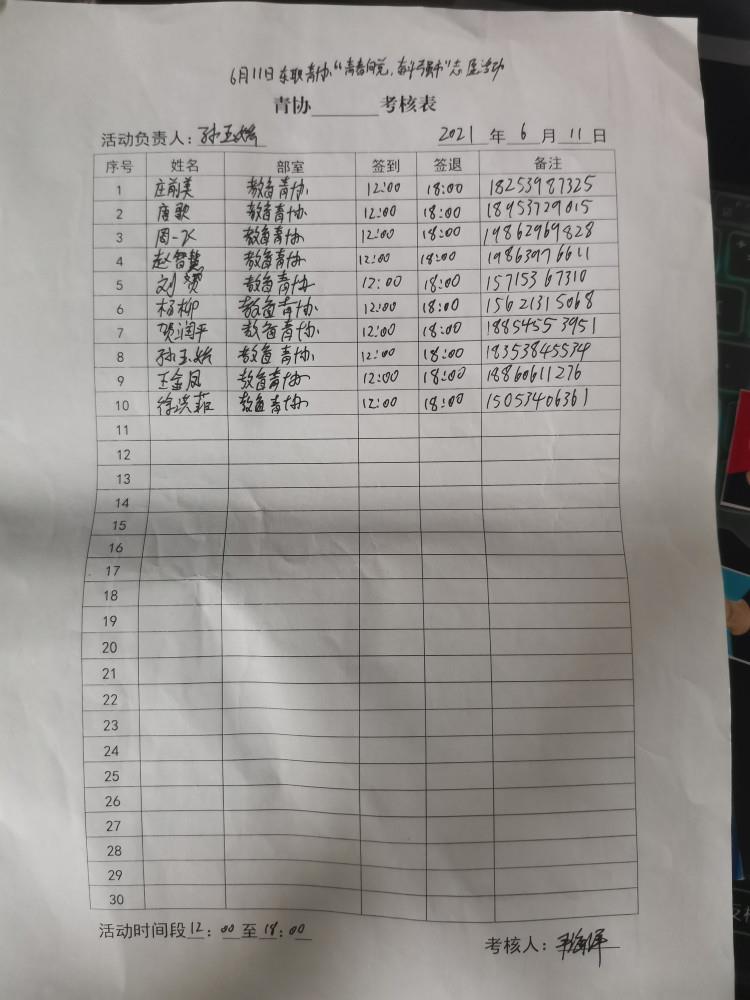 6月11日东职青协"青春向党,奋斗强市"志愿活动
青协______考核表
活动负责人:孙玉娇 2021年6月11日
序号 姓名 部室 签到 签退 备注
1 庄前美 教育青协 12:00 18:00 18253987325
2 唐歌 教育青协 12:00 18:00 18953729015
3 周一飞 教育青协 12:00 18:00 19862969828
4 赵智慧 教育青协 12:00 18:00 19863976611
5 刘赟 教育青协 12:00 18:00 15715367310
6 杨柳 教育青协 12:00 18:00 15621315068
7 贺润平 教育青协 12:00 18:00 18854553951
8 孙玉娇 教育青协 12:00 18:00 18353845534
9 王金凤 教育青协 12:00 18:00 18860611276
10 徐洪菲 教育青协 12:00 18:00 15053406361
11
12
13
14
15
16
17
18
19
20
21
22
23
24
25
26
27
28
29
30
活动时间段12:00至18:00 考核人: